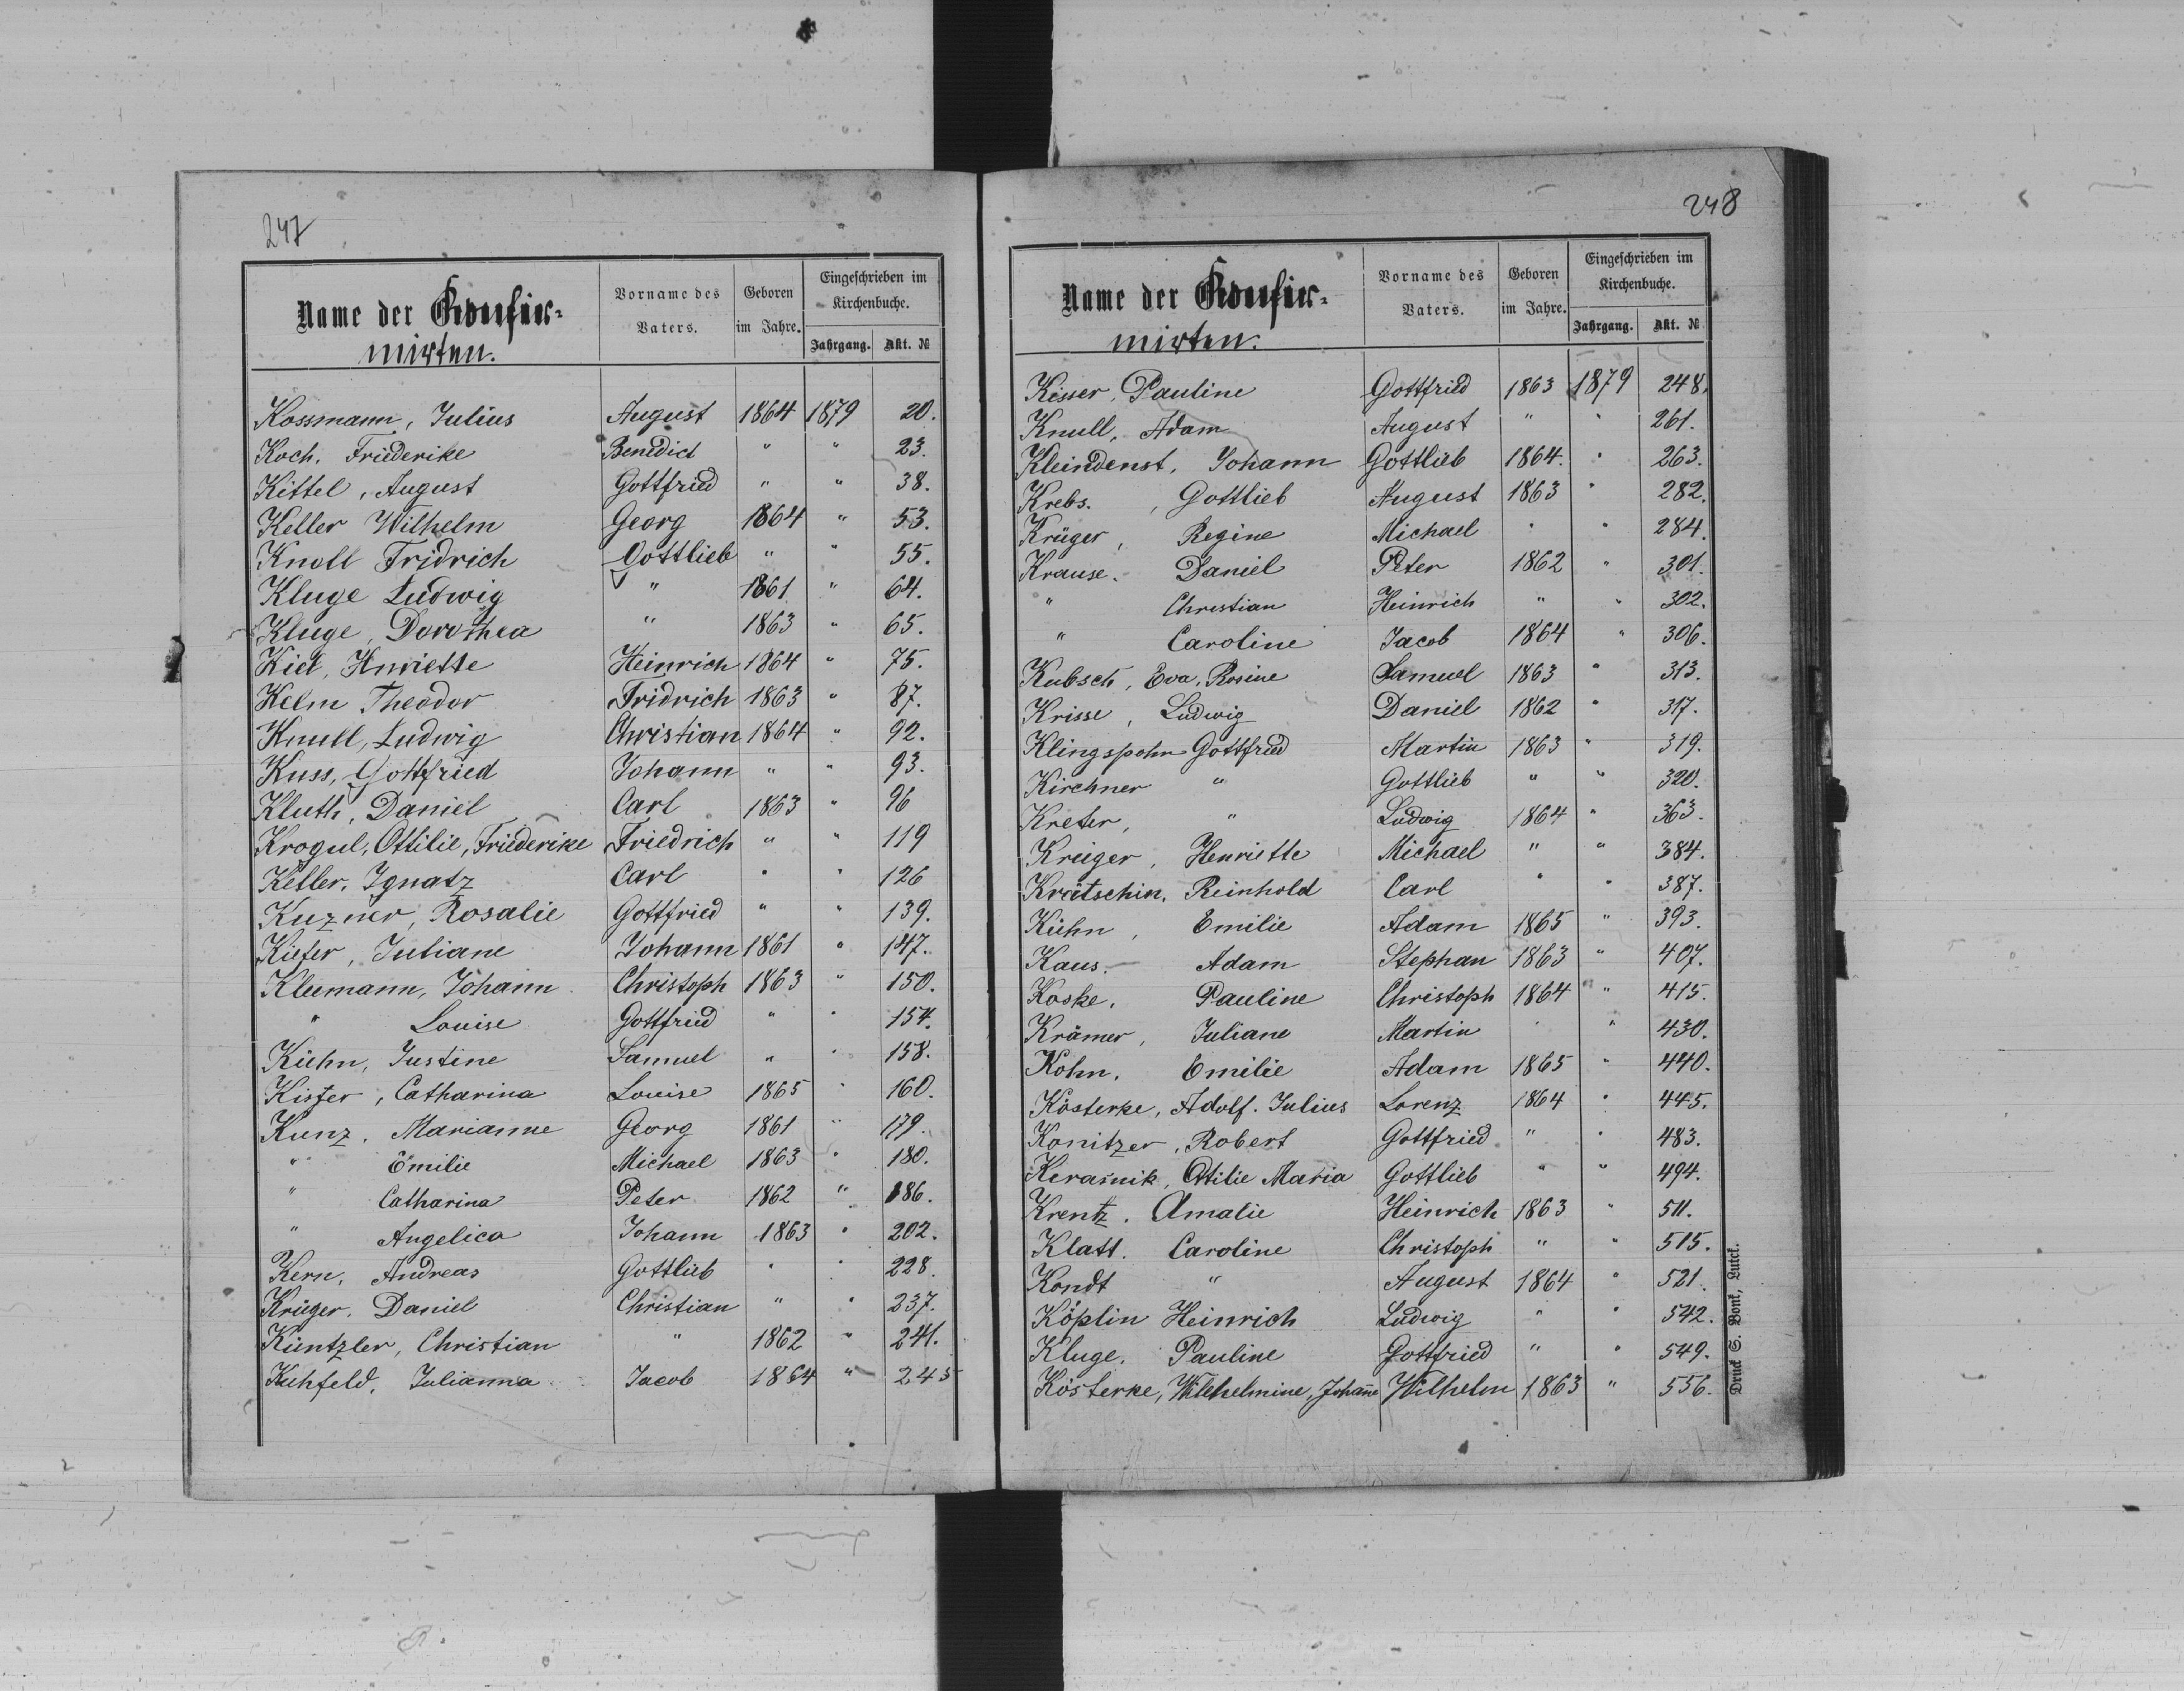 247
Name der Confir-
mirten.
Vorname des Vaters.
Geboren im Jahre.
Eingeschrieben im Kirchenbuche.
Jahrgang. Akt. №
Kossmann, Julius August 1864 1879 20.
Koch, Friederike Benedict " " 23.
Kittel, August Gottfried " " 38.
Keller Wilhelm Georg 1864 " 53.
Knoll Fridrich Gottlieb " " 55.
Kluge Ludwig " 1861 " 64.
Kluge, Dorothea " 1863 " 65.
Kiel, Henriette Heinrich 1864 " 75.
Helm Theodor Fridrich 1863 " 87.
Knull, Ludwig Christian 1864 " 92.
Kuss, Gottfried Johann " " 93.
Kluth, Daniel Carl 1863 " 96
Krogul, Ottilie, Friederike Friedrich " " 119
Keller, Ignatz Carl " " 126
Kuzner, Rosalie Gottfried " " 139.
Kiefer, Juliane Johann 1861 " 147.
Kleemann, Johann Christoph 1863 " 150.
" Louise Gottfried " " 154.
Kühn, Justine Samuel " " 158.
Kister, Catharina Louise 1865 " 160.
Kunz, Marianne Georg 1861 " 179.
" Emilie Michael 1863 " 180.
" Catharina Peter 1862 " 186.
" Angelica Johann 1863 " 202.
Kern, Andreas Gottlieb " " 228.
Krüger, Daniel Christian " " 237.
Küntzler, Christian " 1862 " 241.
Kuhfeld, Julianna Jacob 1864 " 245
248
Name der Confir-
mirten.
Vorname des Vaters.
Geboren im Jahre.
Eingeschrieben im Kirchenbuche.
Jahrgang. Akt. №
Kisser, Pauline Gottfried 1863 1879 248.
Knull, Adam August " " 261.
Kleindenst, Johann Gottlieb 1864. " 263.
Krebs. , Gottlieb August 1863 " 282.
Krüger, Regine Michael " " 284.
Krause. Daniel Peter 1862 " 301.
" Christian Heinrich " " 302.
" Caroline Jacob 1864 " 306.
Kubsch, Eva, Rosine Samuel 1863 " 313.
Krisse, Ludwig Daniel 1862 " 317.
Klingspohn Gottfried Martin 1863 " 319.
Kirchner " Gottlieb " " 320.
Kreter, " Ludwig 1864 " 363.
Krüger, Henriette Michael " " 384.
Krätschin, Reinhold Carl " " 387.
Kühn, Emilie Adam 1865 " 393.
Kaus. Adam Stephan 1863 " 407.
Koske, Pauline Christoph 1864 " 415.
Krämer, Juliane Martin " " 430.
Kohn, Emilie Adam 1865 " 440.
Kösterke, Adolf. Julius Lorenz 1864 " 445.
Konitzer, Robert Gottfried " " 483.
Kerasnik, Otilie Maria Gottlieb " " 494.
Krentz. Amalie Heinrich 1863 " 511.
Klatt. Caroline Christoph " " 515.
Kondt " August 1864 " 521.
Köplin Heinrich Ludwig " " 542.
Kluge. Pauline Gottfried " " 549.
Kösterke, Wilehelmine, Johañe Wilhelm 1863 " 556.
Druck S. Bonk, Luck.